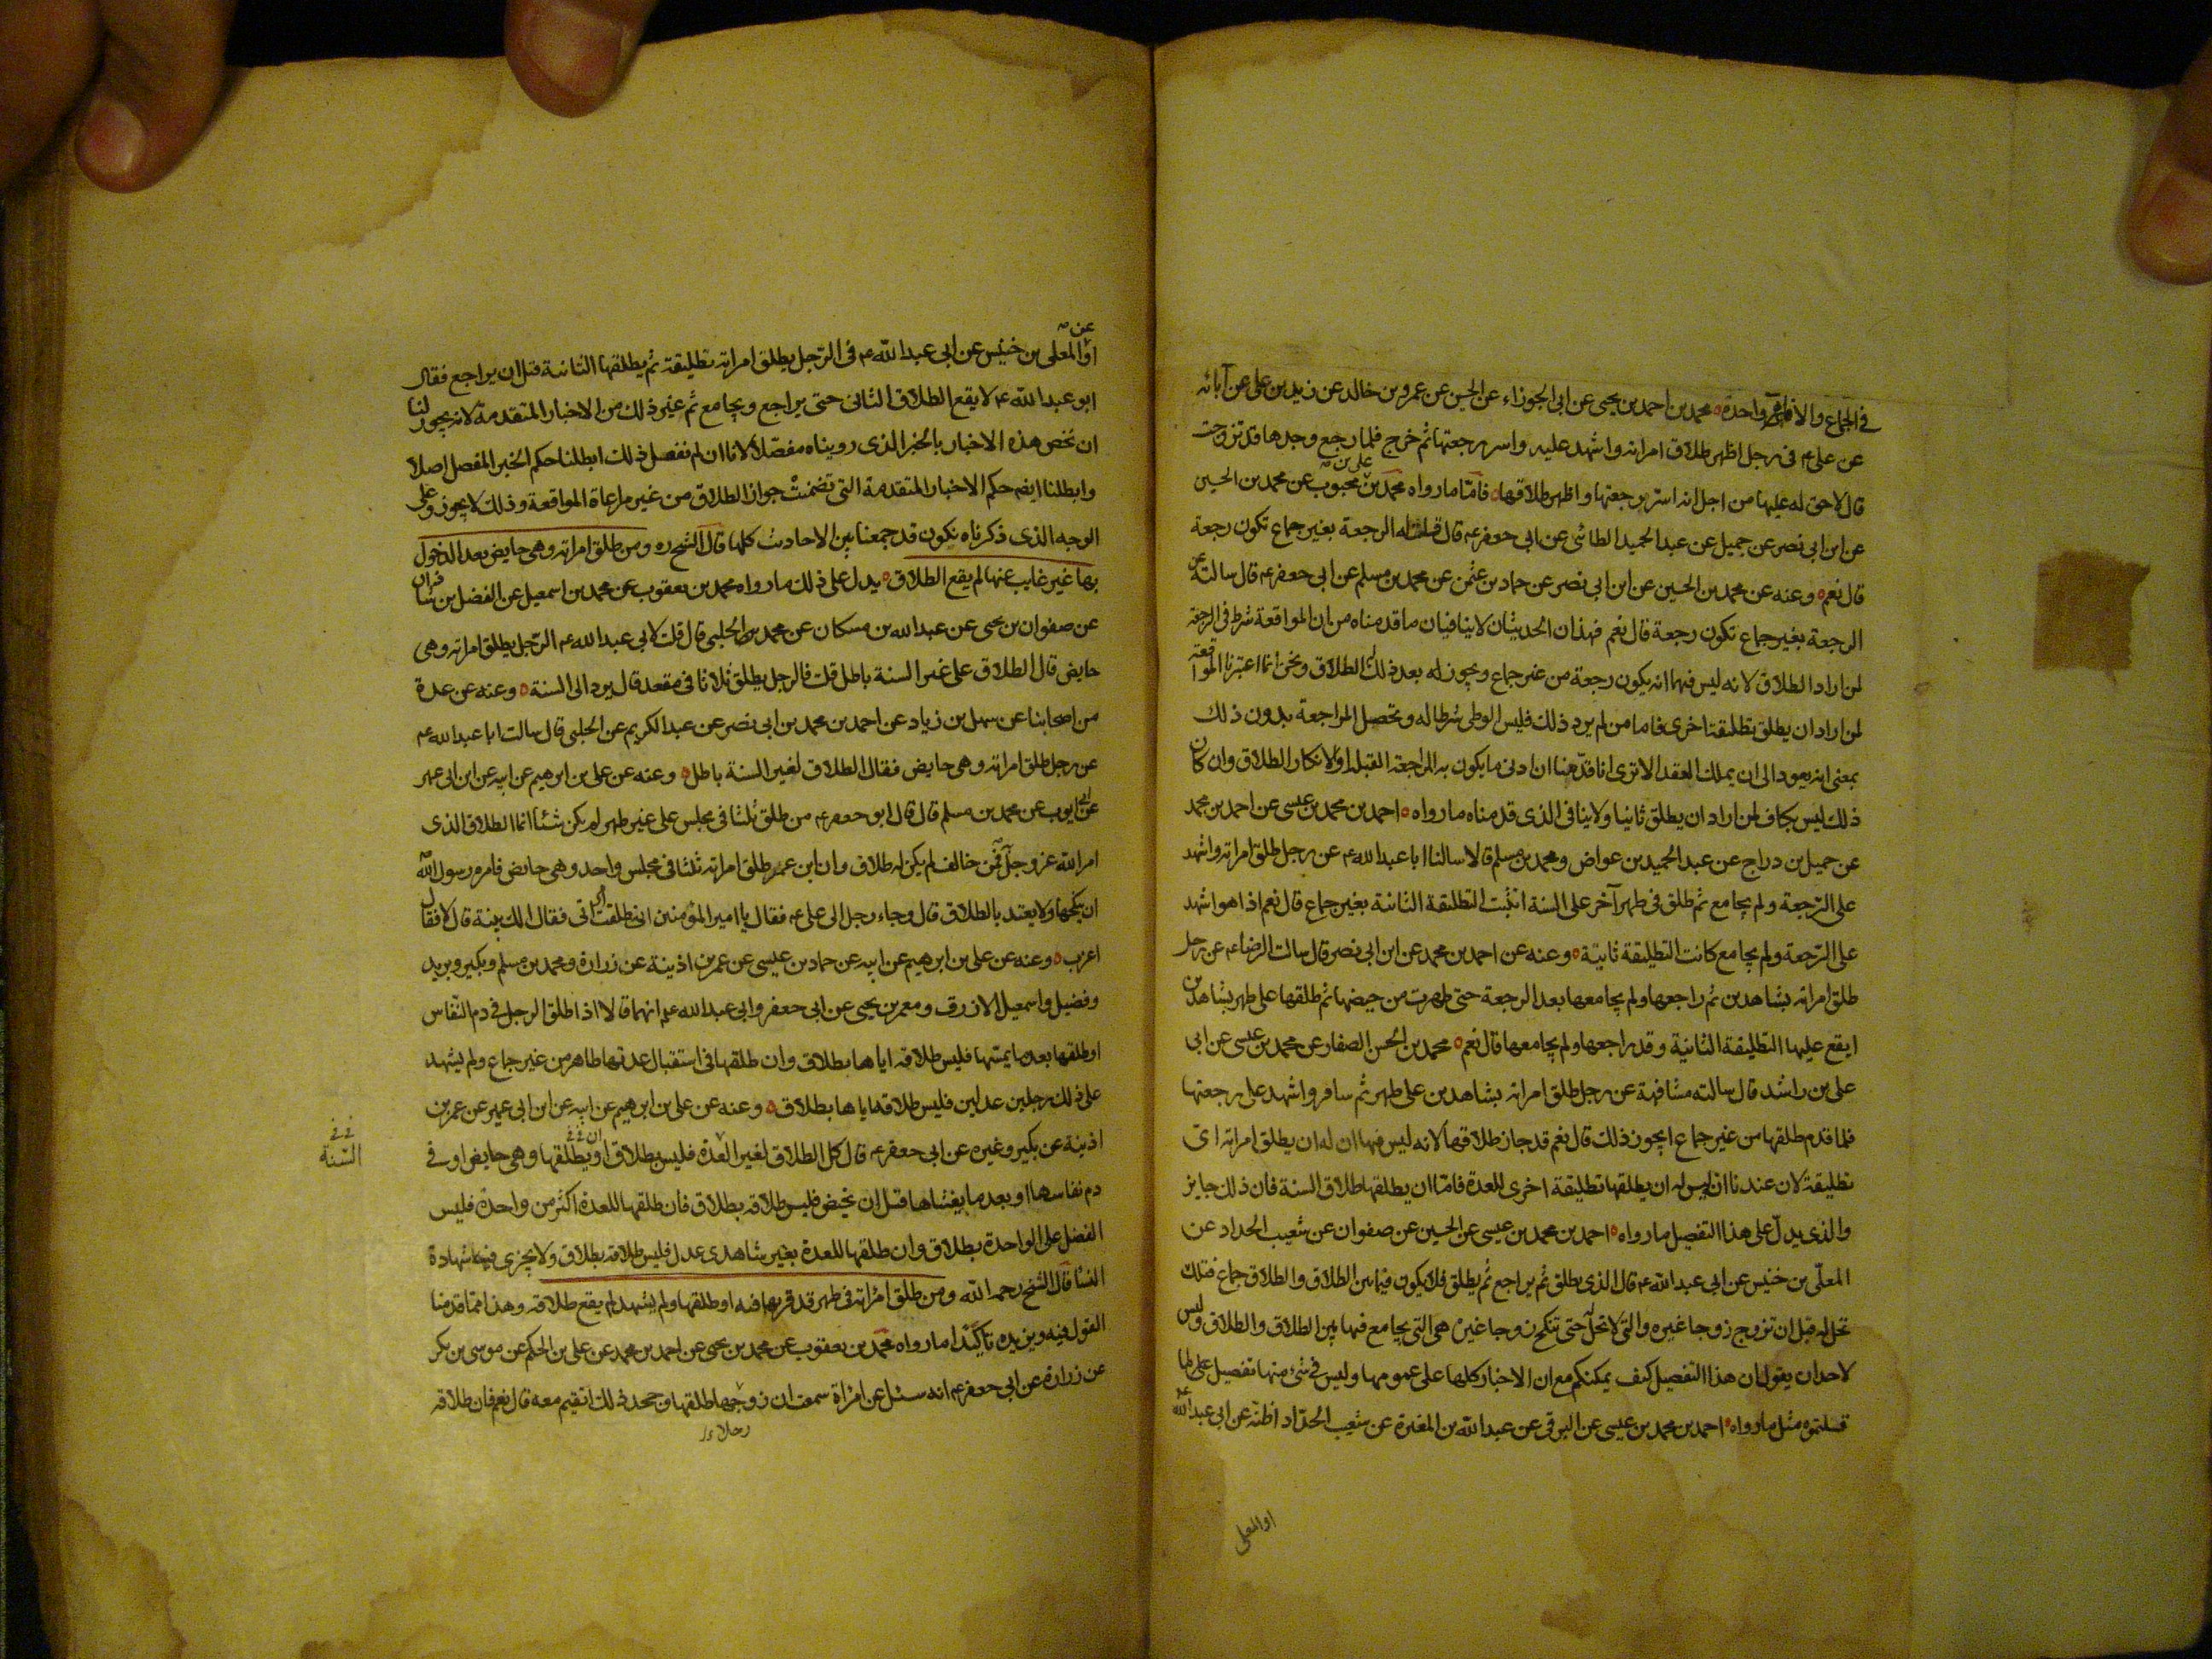 في الجماع والا فلا واحدة محمد بن احمد بن يحيى عن ابى الجوزاء عن الحسين عن عمرو بن خالد عن زيد بن على عن آبائه
عن على ع فى رجل اظهر طلاق امراته واشهد عليه واسر رجعتها ثم خرج فلما رجع وجدها قد تزوجت
قال لا حق له عليها من اجل انه اسر رجعتها واظهر طلاقها فامّا ما رواه محمد بن على بن محبوب عن محمد بن الحسين
عن ابن ابى نصر عن جميل عن عبد الحميد الطائى عن ابى جعفر ع قال قلت له الرجعة بغير جماع تكون رجعة
قال نعم وعنه عن محمد بن الحسين عن ابن ابى نصر عن حماد بن عثمن عن محمد بن مسلم عن ابى جعفر ع قال سالته عن
الرجعة بغير جماع تكون رجعة قال نعم فهذان الحديثان لا ينافيان ما قدمناه من ان المواقعة شرط فى الرجعة
لمن اراد الطلاق لانه ليس فيهما انه يكون رجعة من غير جماع ويجوز له بعد ذلك الطلاق ونحن انما اعتبرنا المواقعة
لمن اراد ان يطلق تطليقة اخرى فاما من لم يرد ذلك فليس الوطى شرطا له وتحصل المراجعة بدون ذلك
بمعنى انه يعود الى ان يملك العقد الا ترى انا قدّمنا ان ادنى ما يكون به المراجعة القبلة او الانكار الطلاق وان كان
ذلك ليس بكاف لمن اراد ان يطلق ثانيا ولا ينافى الذى قدمناه ما رواه احمد بن محمد بن عيسى عن احمد بن محمد
عن جميل بن دراج عن عبد الحميد بن عواض ومحمد بن مسلم قالا سالنا ابا عبد الله ع عن رجل طلق امراته واشهد
على الرّجعة ولم يجامع ثم طلق فى طهر آخر على السنة اتثبت التطليقة الثانية بغير جماع قال نعم اذا هو اشهد
على الرّجعة ولم يجامع كانت التطليقة ثابتة وعنه عن احمد بن محمد عن ابن ابى نصر قال سالت الرضا ع عن رجل
طلق امراته بشاهدين ثم راجعها ولم يجامعها بعد الرجعة حتى طهرت من حيضها ثم طلقها على طهر بشاهدين
ايقع عليها التطليقة الثانية وقد راجعها ولم يجامعها قال نعم محمد بن الحسن الصفار عن محمد بن عيسى عن ابى
على بن راشد قال سالته مشافهة عن رجل طلق امراته بشاهدين على طهر ثم سافر واشهد على رجعتها
فلما قدم طلقها من غير جماع ايجوز ذلك قال نعم قد جاز طلاقها لانه ليس فيها ان له ان يطلق امراته اى
تطليقة لان عندنا انه ليس له ان يطلقها تطليقة اخرى للعدة فامّا ان يطلقها طلاق السنة فان ذلك جايز
والذى يدلّ على هذا التفصيل ما رواه احمد بن محمد بن عيسى عن الحسين عن صفوان عن شعيب الحداد عن
المعلّى بن خنيس عن ابى عبد الله ع قال الذى يطلق ثم يراجع ثم يطلق فلا يكون فيما بين الطلاق والطلاق جماع فتلك
تحل له قبل ان تزوج زوجا غيره والتى لا تحل له حتى تنكح زوجا غيره هى التى يجامع فيما بين الطلاق والطلاق وليس
لاحد ان يقول ان هذا التفصيل كيف يمكنكم مع ان الاخبار كلها على عمومها وليس فى شئ منها تفصيل على ما
قسلتموه مثل ما رواه احمد بن محمد بن عيسى عن البرقى عن عبد الله بن المغيرة عن شعيب الحدّاد اظنّه عن ابى عبد الله ع
او المعلى
او عن المعلى بن خنيس عن ابى عبد الله ع فى الرّجل يطلق امراته تطليقة ثم يطلقها الثانية قبل ان يراجع فقال
ابو عبد الله ع لا يقع الطلاق الثانى حتى يراجع ويجامع ثم غير ذلك من الاخبار المتقدمة لانه يجوز لنا
ان نخص هذه الاخبار بالخبر الذى رويناه مفصّلا لانا ان لم نفصل ذلك ابطلنا حكم الخبر المفصل اصلا
وابطلنا ايضا حكم الاخبار المتقدمة التى تضمنت جواز الطلاق من غير مراعاة المواقعة وذلك لا يجوز وعلى
الوجه الذى ذكرناه نكون قد جمعنا بين الاحاديث كلها قال الشيخ ره ومن طلق امراته وهى حايض بعد الدخول
بها غير غايب عنها لم يقع الطلاق يدل على ذلك ما رواه محمد بن يعقوب عن محمد بن اسمعيل عن الفضل بن شاذان
عن صفوان بن يحيى عن عبد الله بن مسكان عن محمد بن الحلبى قال قلت لابى عبد الله ع الرّجل يطلق امراته وهى
حايض قال الطلاق على غير السنة باطل قلت فالرجل يطلق ثلاثا فى مقعد قال يرد الى السنة وعنه عن عدة
من اصحابنا عن سهل بن زياد عن احمد بن محمد بن ابى نصر عن عبد الكريم عن الحلبى قال سالت ابا عبد الله ع
عن رجل طلق امراته وهى حايض فقال الطلاق لغير السنة باطل وعنه عن على بن ابرهيم عن ابيه عن ابن ابى عمير
عن ابى ايوب عن محمد بن مسلم قال قال ابو جعفر ع من طلق ثلثا فى مجلس على غير طهر لم يكن شئا انما الطلاق الذى
امر الله عز وجل فمن خالف لم يكن له طلاق وان ابن عمر طلق امراته ثلثا فى مجلس واحد وهى حايض فامره رسول الله
ان ينكحها ولا يعتد بالطلاق قال وجاء رجل الى على ع فقال يا امير المؤمنين انى طلقت امراتى فقال الك بينة قال لا فقال
اعزب وعنه عن على بن ابرهيم عن ابيه عن حماد بن عيسى عن عمر بن اذينة عن زرارة ومحمد بن مسلم وبكير وبريد
وفضيل واسمعيل الازرق ومعمر بن يحيى عن ابى جعفر وابى عبد الله ع انهما قالا اذا طلق الرجل فى دم النّفاس
او طلقها بعد ما يمسّها فليس طلاقه اياها بطلاق وان طلقها فى استقبال عدتها طاهرا من غير جماع ولم يشهد
على ذلك رجلين عدلين فليس طلاقه اياها بطلاق وعنه عن على بن ابرهيم عن ابيه عن ابن ابى عمير عن عمر بن
اذينة عن بكير وغيره عن ابى جعفر ع قال كل الطلاق لغير العدة فليس بطلاق ان او يطلقها وهى حايض او فى
السّنة
دم نفاسها او بعد ما يغشاها قبل ان تحيض فليس طلاقه بطلاق فان طلقها للعدة اكثر من واحدة فليس
الفضل على الواحدة بطلاق وان طلقها للعدة بغير شاهدى عدل فليس طلاقه بطلاق ولا يجزى فيه شهادة
النسا قال الشيخ رحمه الله ومن طلق امراته فى طهر قد قربها فيه او طلقها ولم يشهد لم يقع طلاقه وهذا مما قدمنا
القول فيه ويزيده تاكيدا ما رواه محمد بن يعقوب عن محمد بن يحيى عن احمد بن محمد عن على بن الحكم عن موسى بن بكر
عن زرارة عن ابى جعفر ع انه سئل عن امراة سمعت ان زوجها طلقها وجحد ذلك اتقيم معه قال نعم فان طلاقه